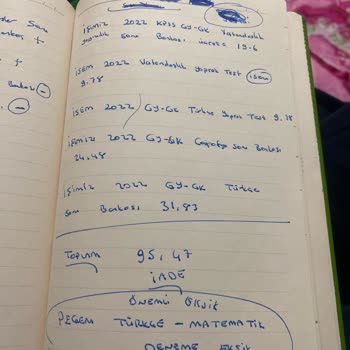 der Soru
+
+
Bankası −
−
İŞEMİZ 2022 KPSS GY-GK Vatandaşlık
Soru Bankası 19.6
İSEM 2022 Vatandaşlık yaprak Test isem
9.78
İSEM 2022 / GY-GK Türkçe Yaprak Test 9.78
2022 GY-GK Coğrafya Soru Bankası
24,48
2022 GY-GK Türkçe
Soru Bankası 31,83
TOPLAM 95,47
İADE
ÖNEMLİ EKSİK
PEGEM TÜRKÇE – MATEMATİK
DENEME EKSİK